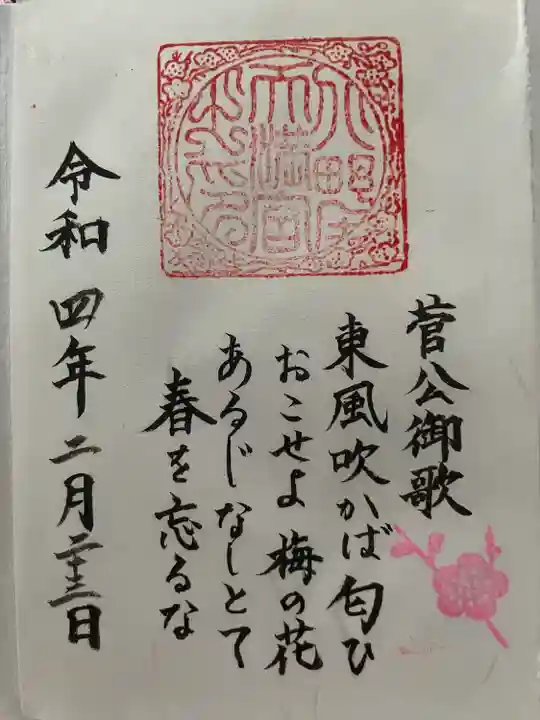 菅公御歌
東風吹かば匂ひ
おこせよ 梅の花
あるじなしとて
春を忘るな
令和四年二月二十三日